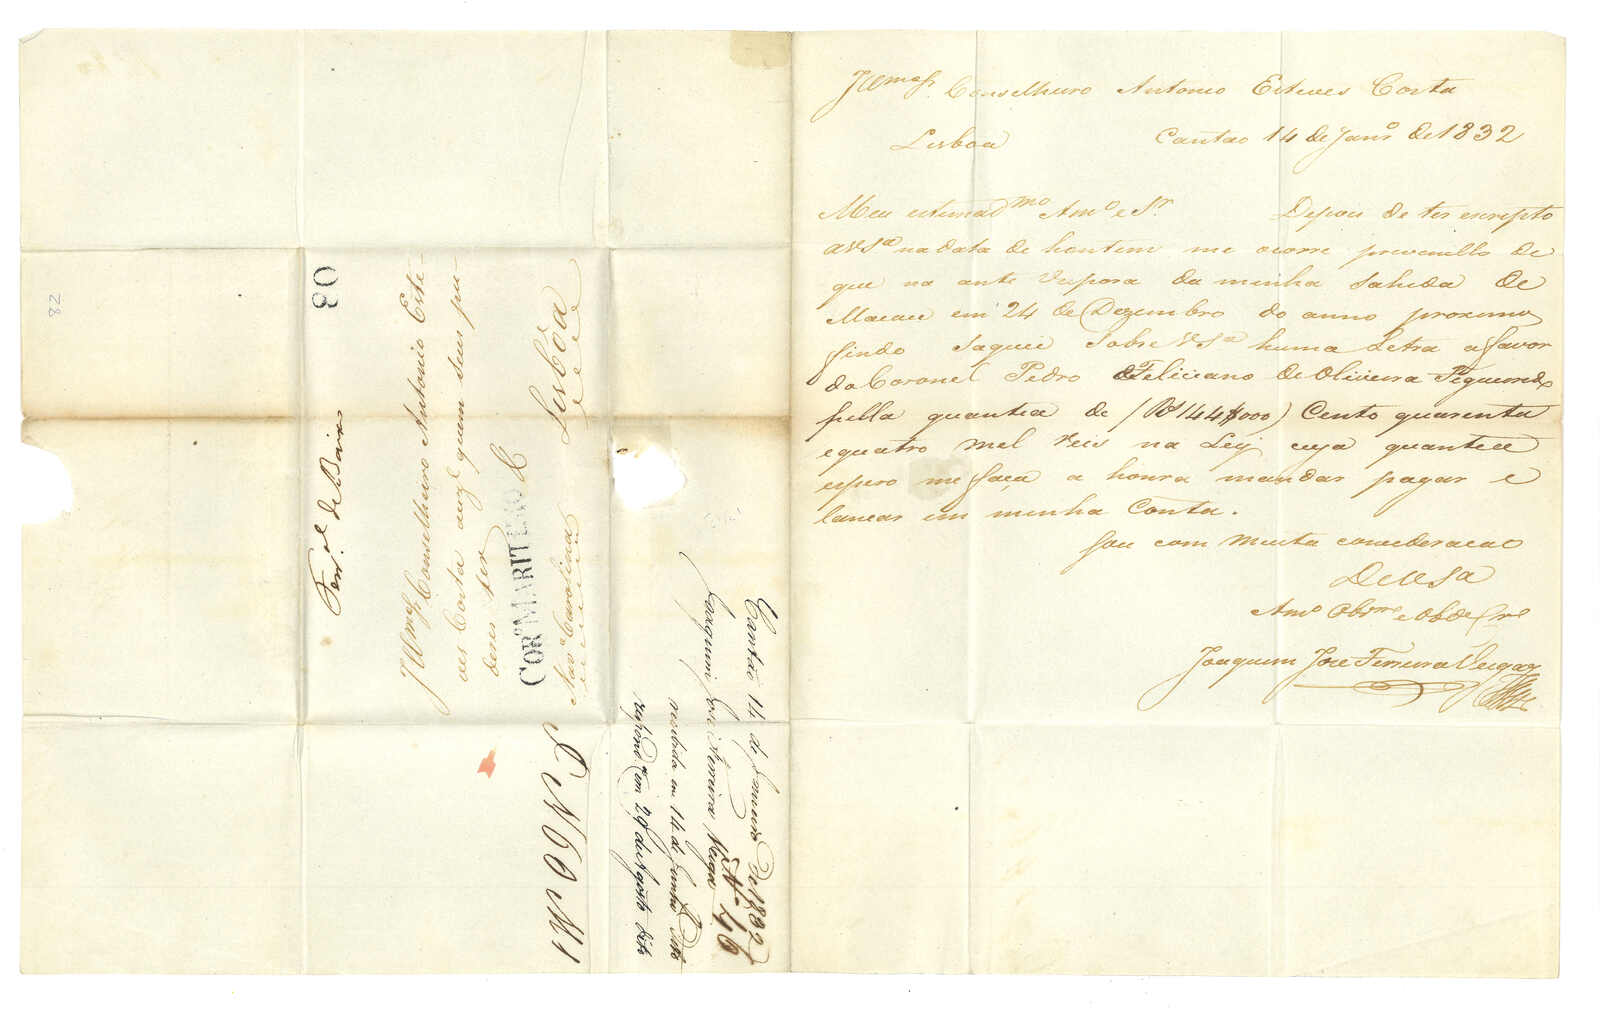 Illmo Sr. Conselheiro Antonio Esteves Costa
Lisboa Cantao 14 de Janro de 1832
Meu estimadmo Amo e Sr. Depois de ter escripto
a VSa na data de hontem me ocorre prevenillo de
que na ante Vespora da minha Sahida de
Macau em 24 de Dezembro do anno proximo
findo Saquei Sobre VSa huma Letra a favor
do Coronel Pedro Feliciano de Oliveira Figueiredo
pella quantia de (Rs 144$000) Cento quarenta
e quatro mil reis na Ley cuja quantia
espero me faça a honra mandar pagar e
lancar em minha Conta.
Sou com muita consideracao
De VSa
Amo Obrmo e Obde Cro
Joaquim Joze Ferreira Veiga
Illmo Sr. Conselheiro Antonio Este-
ves Costa auzte quem seus po-
deres ter
COR.o MARITIMO
Navo Carolina Lisboa
80
Ferdo de Bairo
82
Cantão 14 de Janeiro de 1832
Joaquim José Ferreira Veiga
No 46
recibida em 14 de Junho Dito
respondda em 29 de Agosto dito